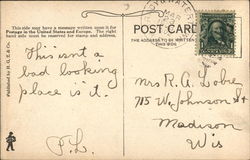 This side may have a message written upon it for
Postage in the United States and Europe. The right
hand side must be reserved for stamp and address.
POST CARD
THE ADDRESS TO BE WRITTEN
THIS SIDE
This isn't a
bad looking
place is it.
P.L.
Mrs R.A. Lobe
715 W. Johnson St
Madison
Wis
Published by